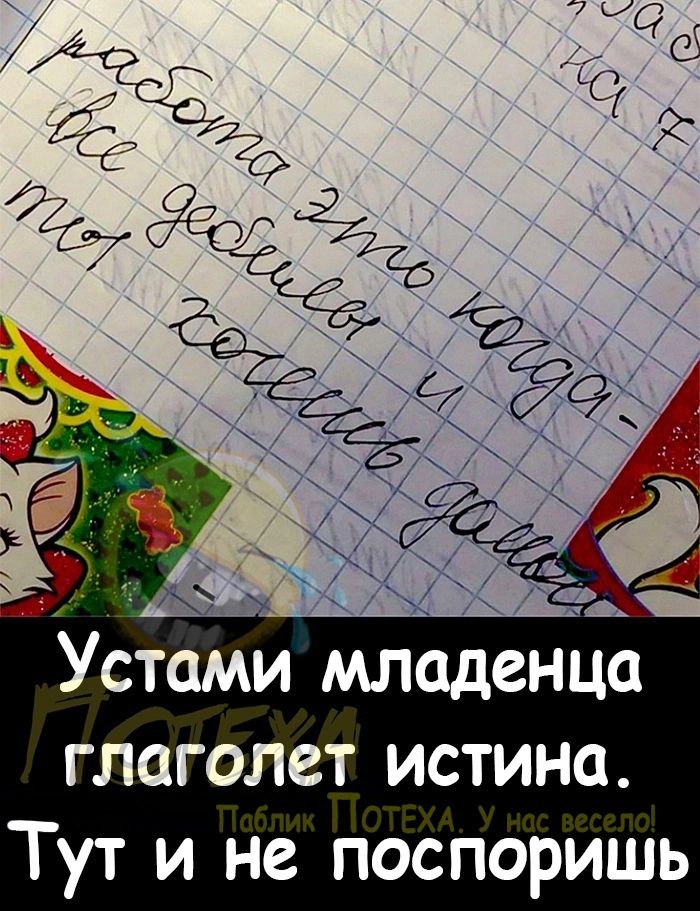 на 7
работа это когда-
все дебилы и
ты хочешь домой
Устами младенца
глаголет истина.
Тут и не поспоришь
ПОТЕХА
Паблик ПОТЕХА. У нас весело!